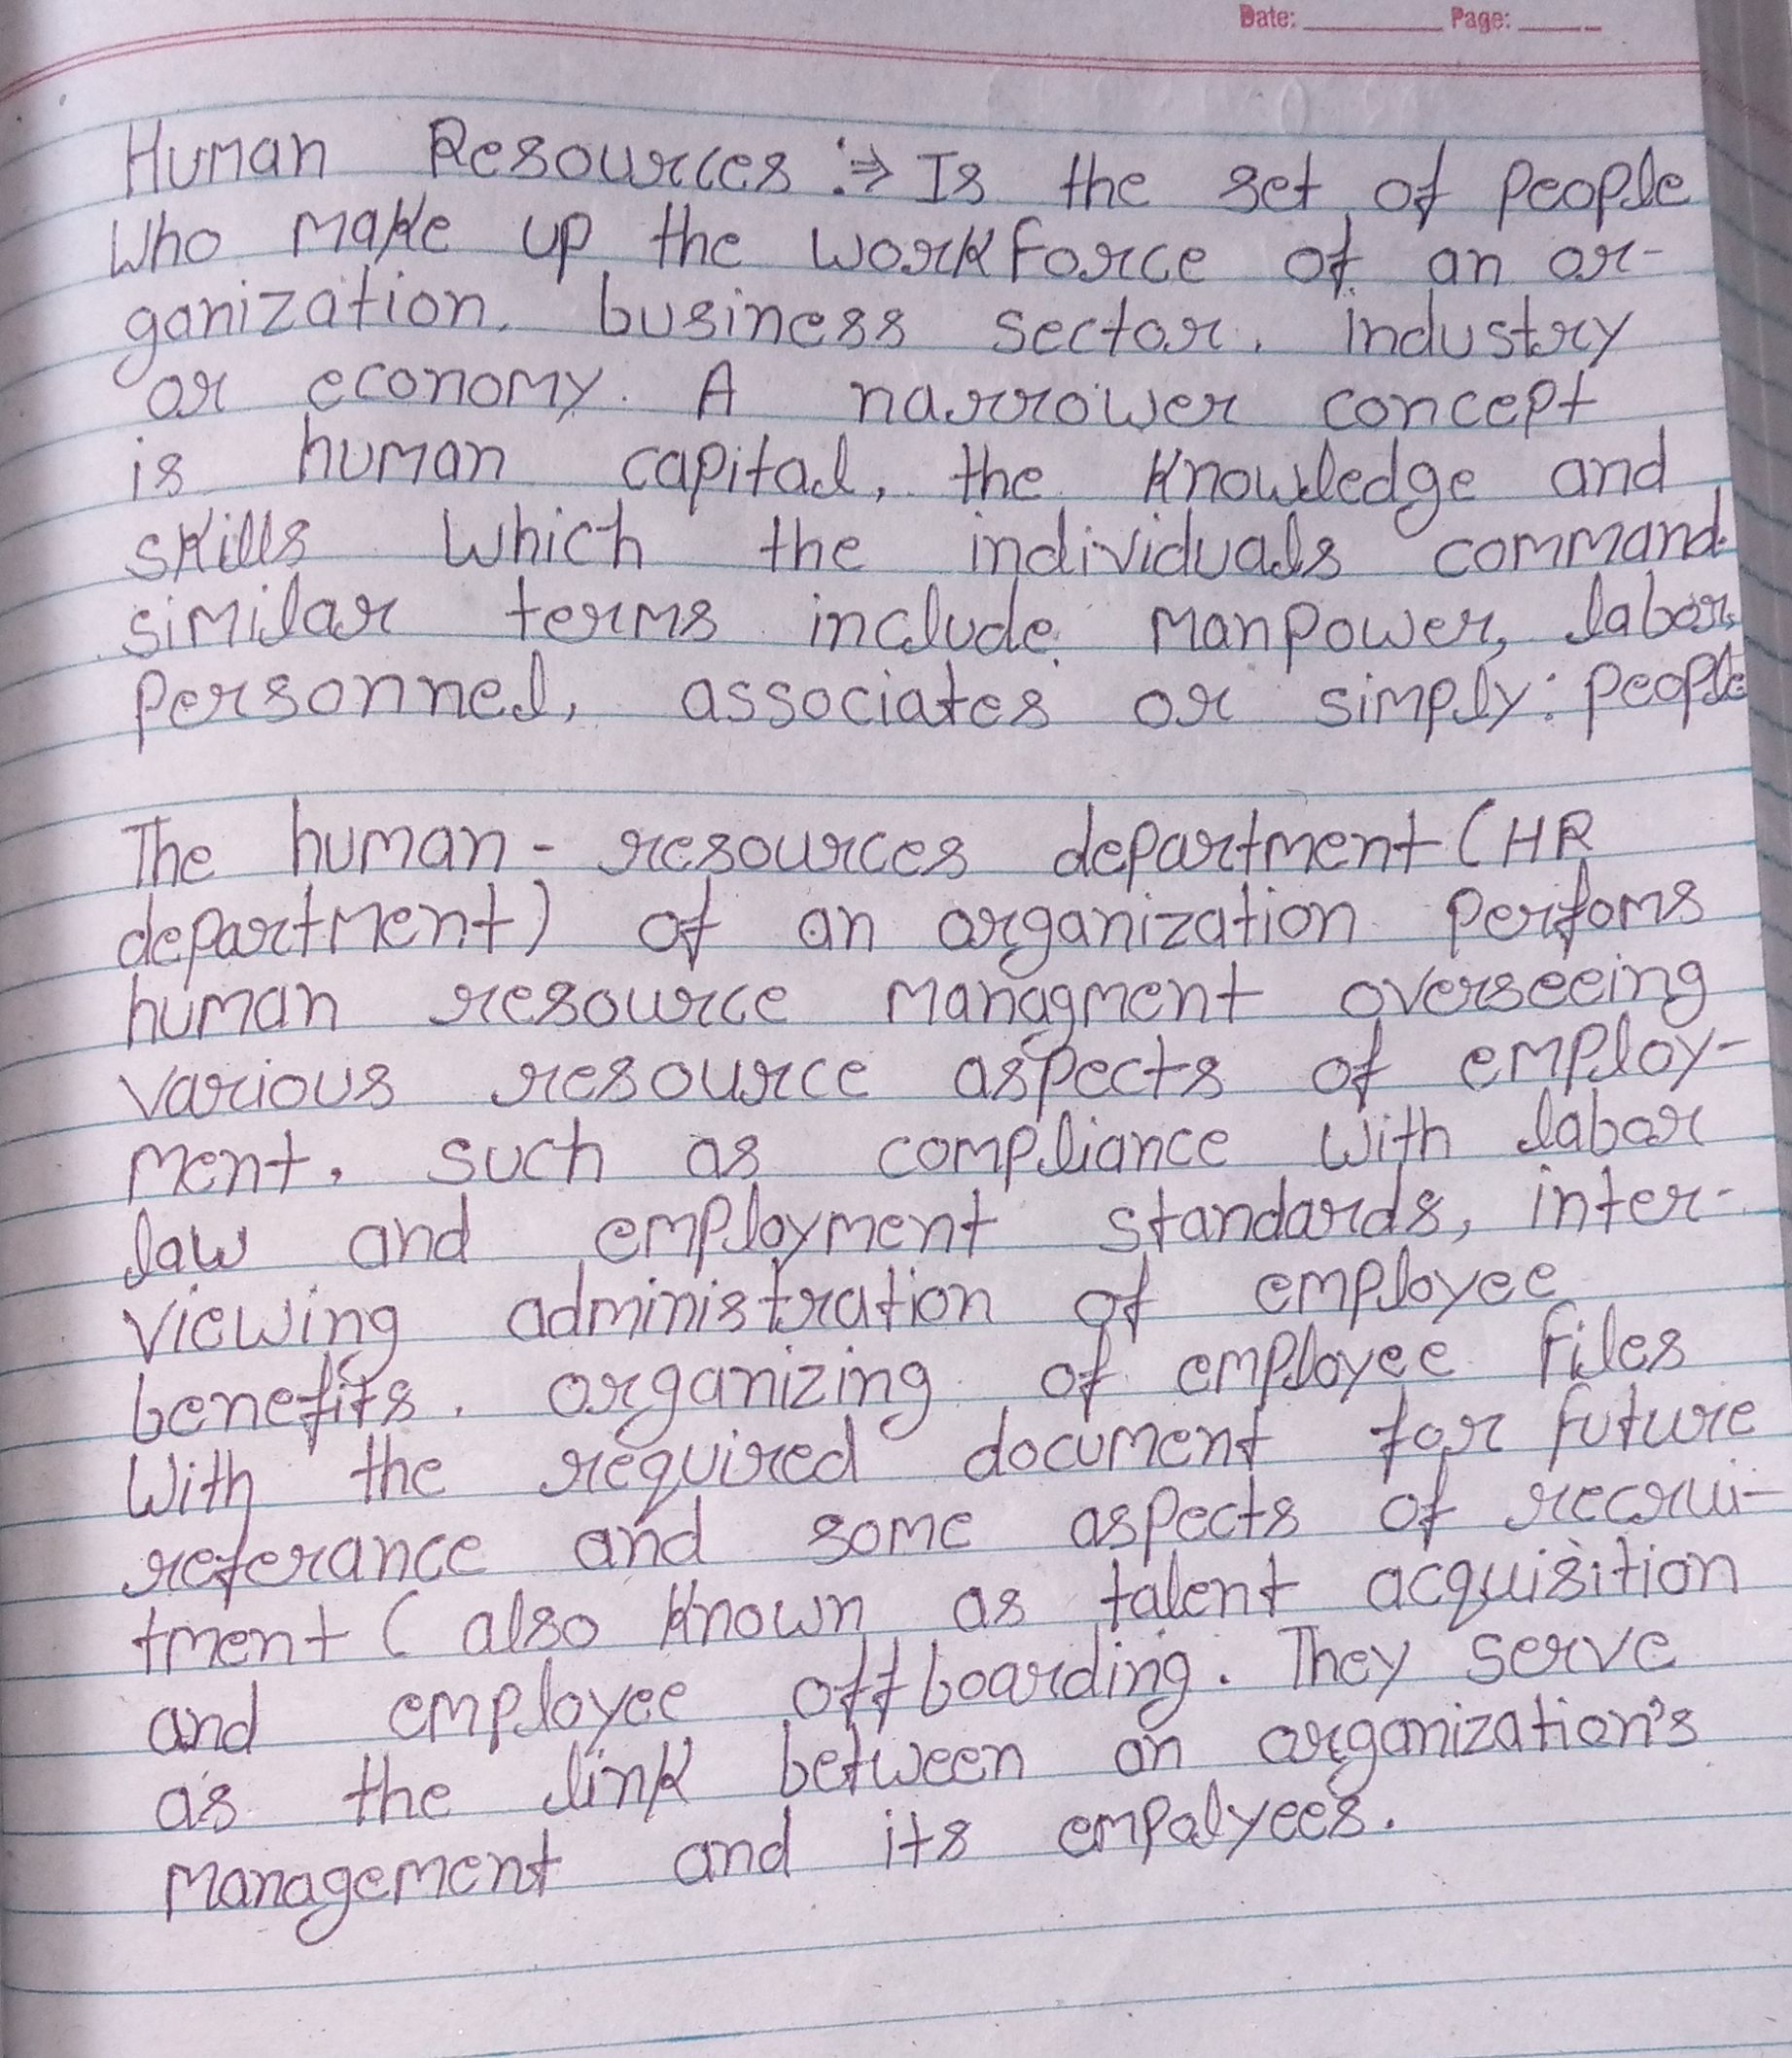 Date: Page:
Human Resources :⇒ Is the set of people
Who make up the workforce of an or-
ganization. business sector. industry
or economy. A narrower concept
is human capital, the knowledge and
skills which the individuals command.
similar terms include manpower, labor,
personnel, associates or simply: people
The human - resources department (HR
department) of an organization perfoms
human resource managment overseeing
various resource aspects of employ-
ment. such as compliance with labor
law and employment standards, inter-
viewing administration of employee
benefits. organizing of employee files
with the required document for future
referance and some aspects of recrui-
tment ( also known as talent acquisition
and employee offboarding. They serve
as the link between an organization's
management and its empalyees.